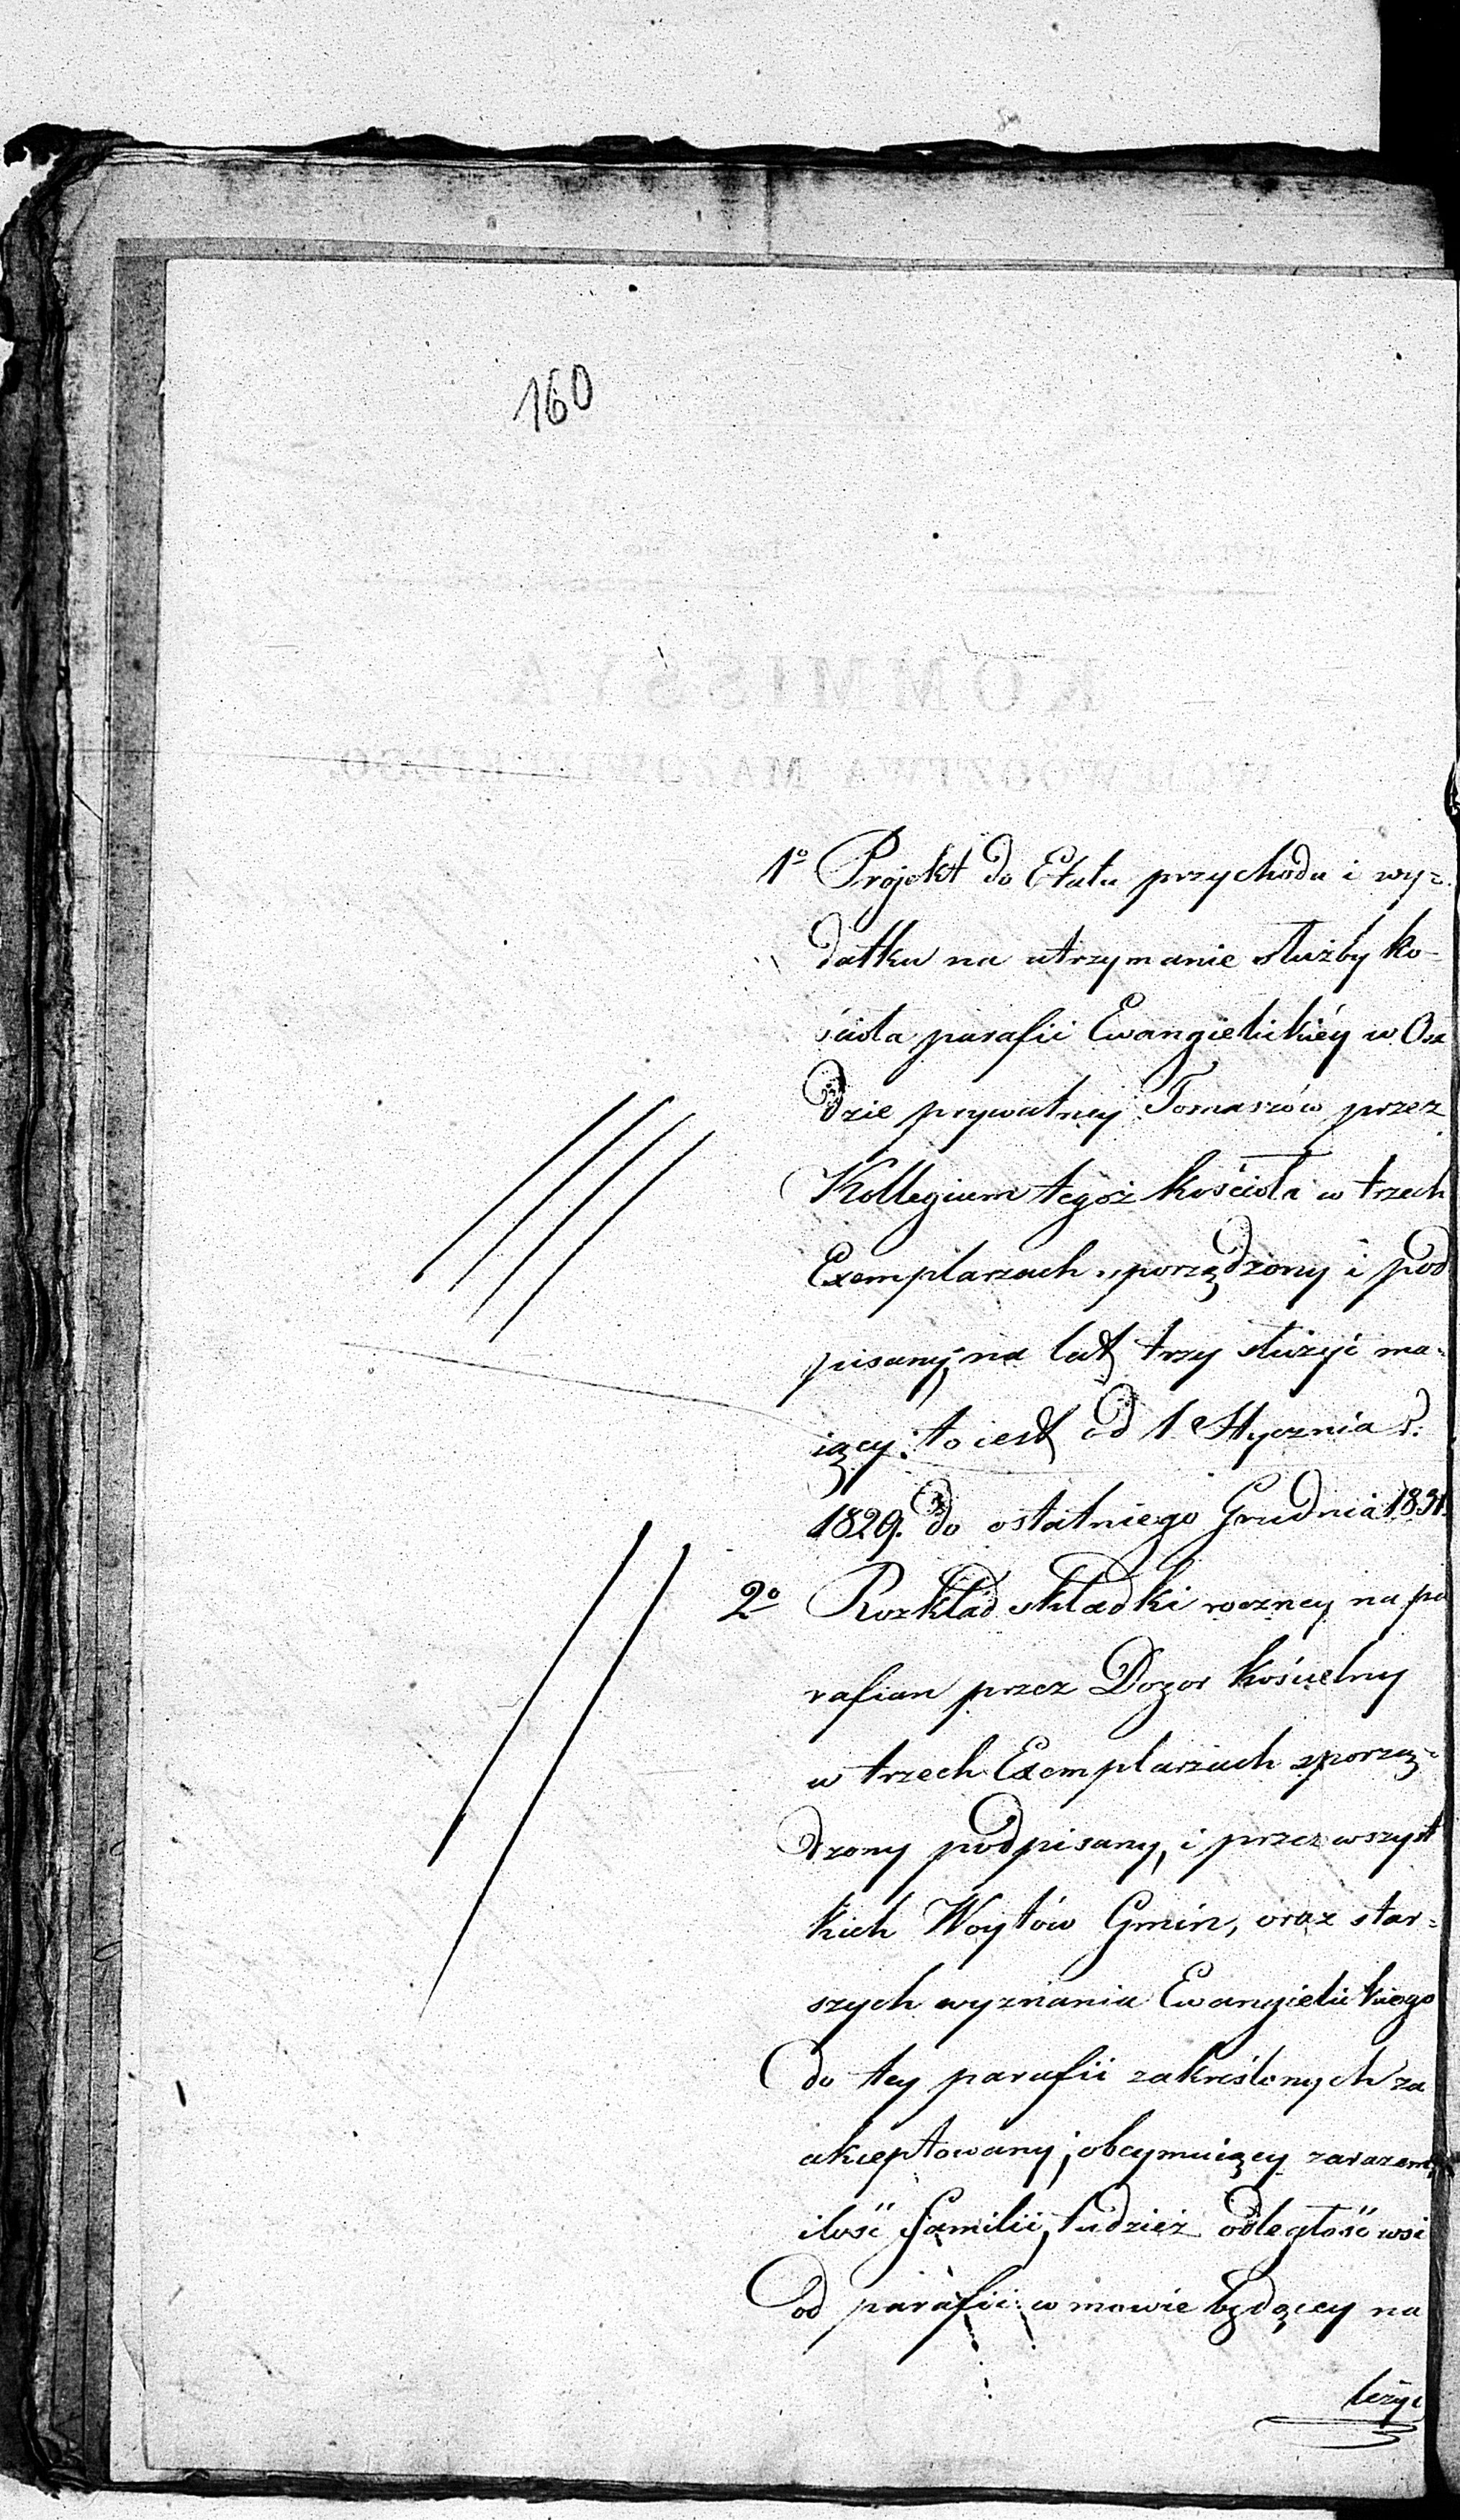 160
1º Projekt do Etatu przychodu i wy=
datku na utrzymanie służby ko-
ścioła parafii Ewangielickiéy w Osa
dzie prywatney Tomaszów przez
Kollegium tegoż kościoła w trzech
Exemplarzach sporządzony i pod
pisany, na lat trzy służyć ma=
iący: to iest od 1 Stycznia r.
1829. do ostatniego Grudnia 1831.
2º Rozkład składki roczney na pa
rafian przez Dozor kościelny
w trzech Exemplarzach sporzą=
dzony podpisany, i przez wszyst
kich Woytów Gmin, oraz star=
szych wyznania Ewangielickiego
do tey parafii zakreślonych za
akceptowany, obeymuiący zarazem
ilość familii, tudzież odległość wsi
od parafii w mowie będącey na
leżyc